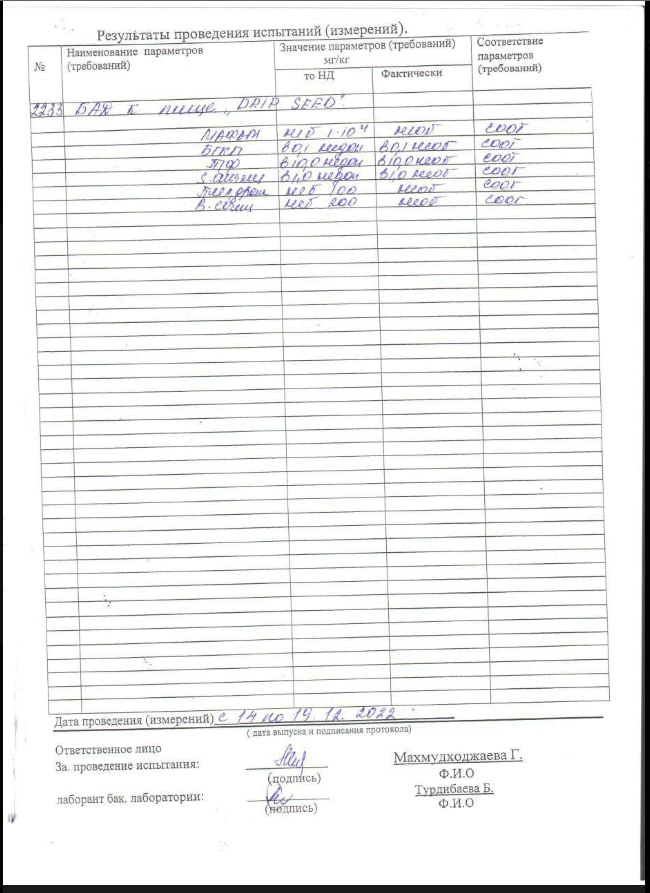 Результаты проведения испытаний (измерений).
№ Наименование параметров (требований) Значение параметров (требований) мг/кг Соответствие параметров (требований)
то НД Фактически
2233 БАД к пище „DRIP SEED"
МАФАМ н/б 1·10⁴ необ соот
БГКП в 0,1 недоп в 0,1 необ соот
в 10,0 недоп в 10,0 необ соот
S. aureus в 1,0 недоп в 1,0 необ соот
100 необ соот
B. cereus 200 необ соот
Дата проведения (измерений) с 14 по 19. 12. 2022
( дата выпуска и подписания протокола)
Ответственное лицо
За. проведение испытания: Махмудходжаева Г.
(подпись) Ф.И.О
лаборант бак. лаборатории: Турдибаева Б.
(подпись) Ф.И.О